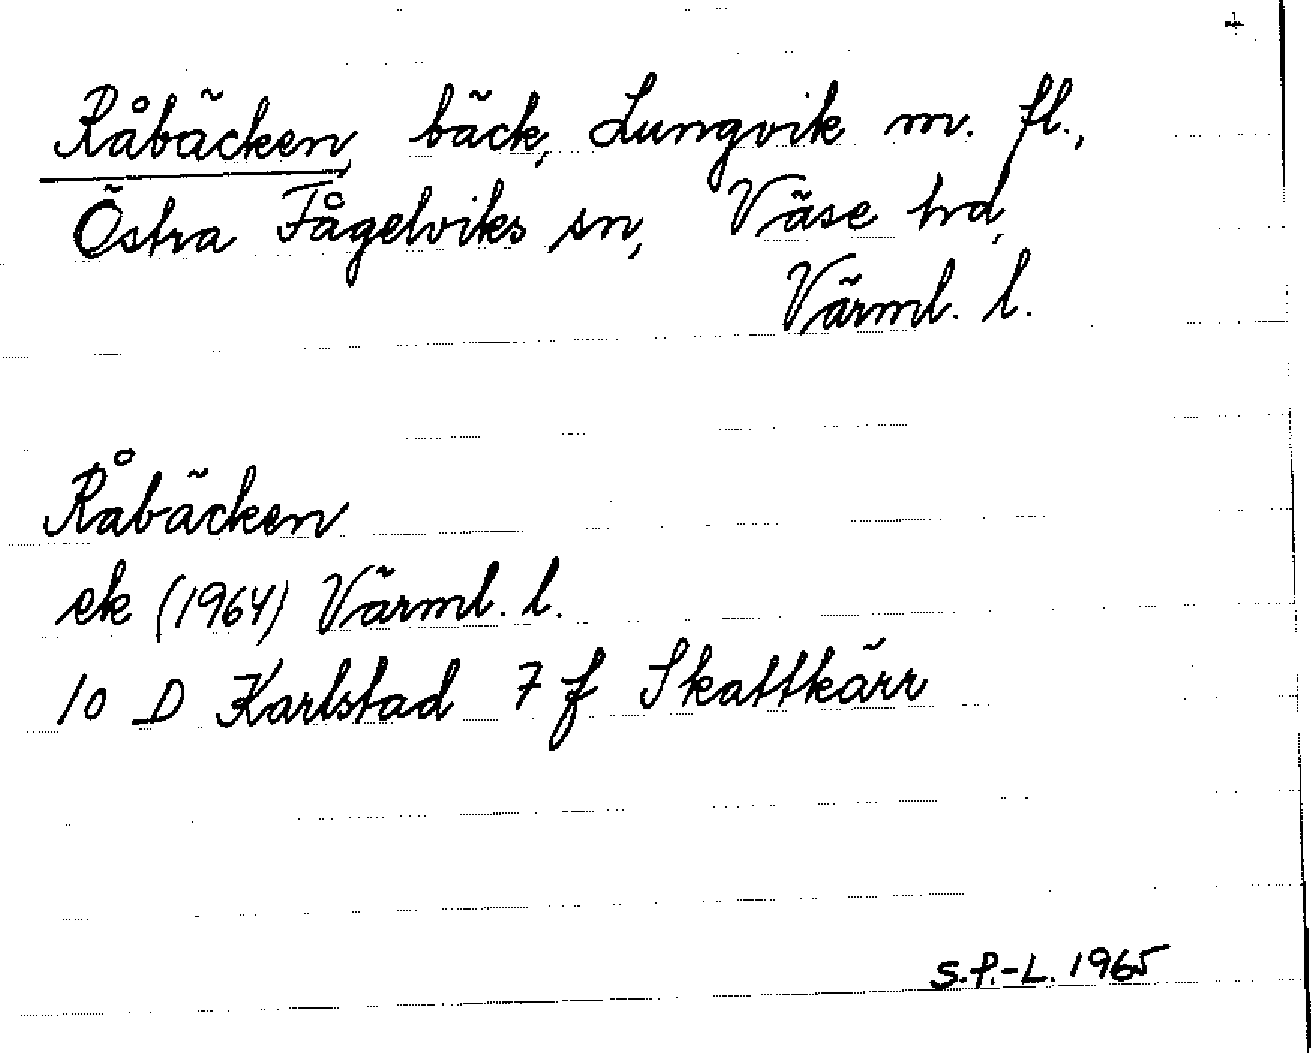 +
Råbäcken, bäck, Lungvik m. fl.,
Östra Fågelviks sn, Väse hd,
Värml. l.
Råbäcken
ek (1964) Värml. l.
10 D Karlstad 7 f Skattkärr
S.P.-L. 1965